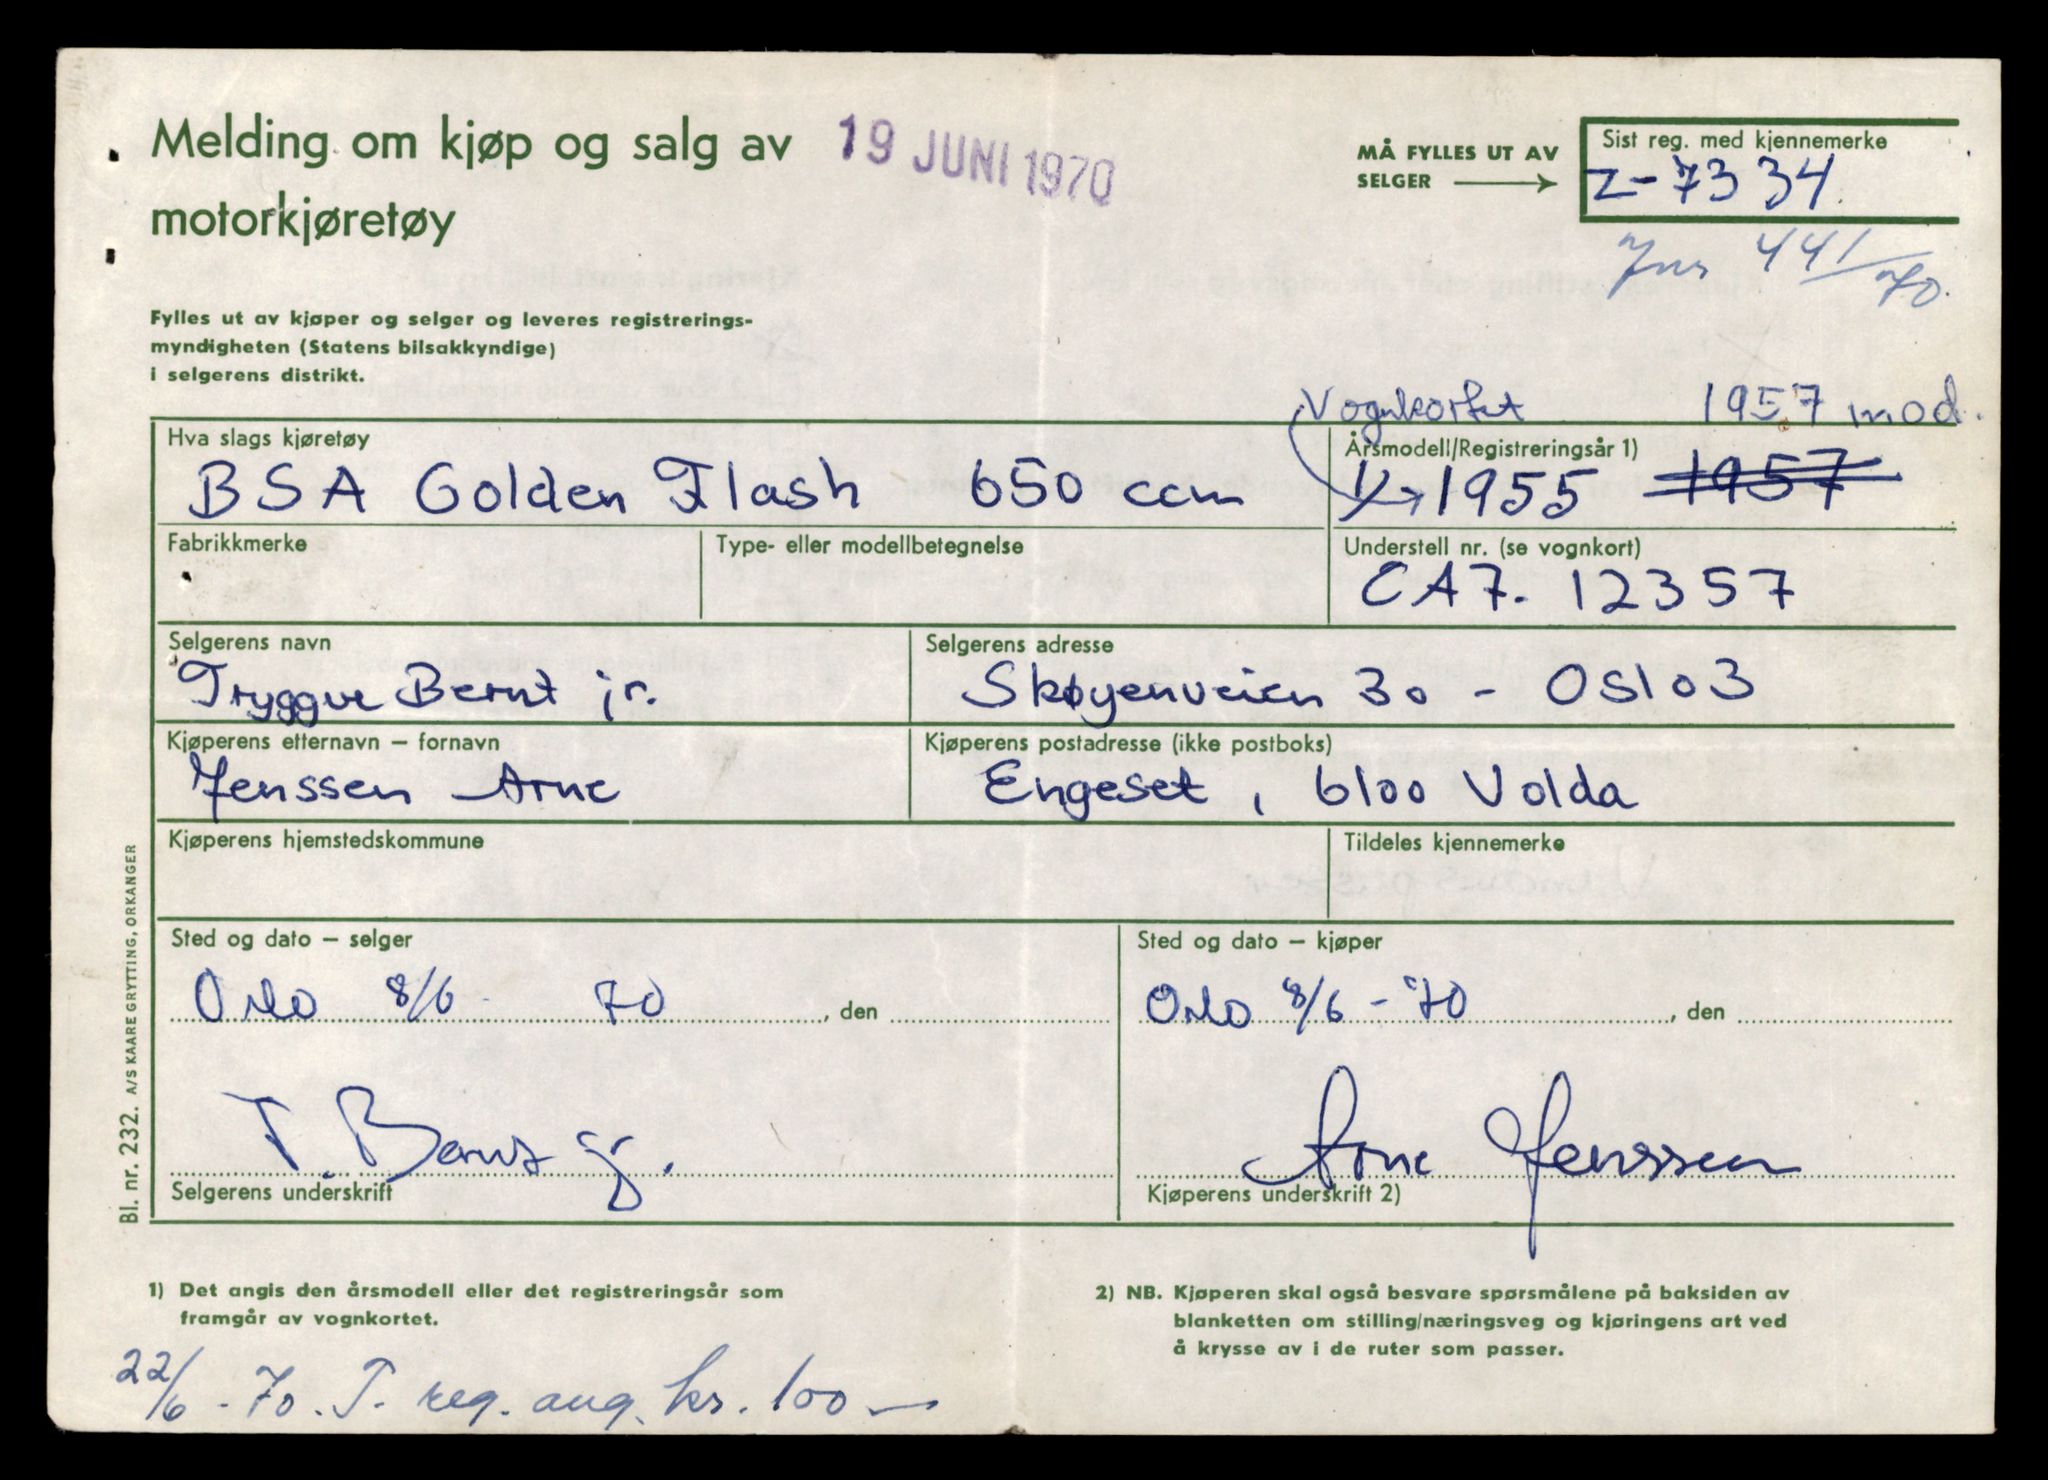 Melding om kjøp og salg av
motorkjøretøy
19 JUNI 1970
MÅ FYLLES UT AV
SELGER
Sist reg. med kjennemerke
Z-7334
Jnr 441/70.
Fylles ut av kjøper og selger og leveres registrerings-
myndigheten (Statens bilsakkyndige)
i selgerens distrikt.
Vognkortet 1957 mod.
Hva slags kjøretøy
BSA Golden Flash 650 ccm
Årsmodell/Registreringsår 1)
1955 1957
Fabrikkmerke
Type- eller modellbetegnelse
Understell nr. (se vognkort)
CA7. 12357
Selgerens navn
Tryggve Bernt jr.
Selgerens adresse
Skøyenveien 30 - Oslo 3
Kjøperens etternavn – fornavn
Jenssen Arne
Kjøperens postadresse (ikke postboks)
Engeset, 6100 Volda
Kjøperens hjemstedskommune
Tildeles kjennemerke
Sted og dato – selger
Oslo 8/6 - 70, den
Sted og dato – kjøper
Oslo 8/6 - 70, den
T. Bernt jr.
Selgerens underskrift
Arne Jenssen
Kjøperens underskrift 2)
Bl. nr. 232. A/S KAARE GRYTTING, ORKANGER
1) Det angis den årsmodell eller det registreringsår som
framgår av vognkortet.
2) NB. Kjøperen skal også besvare spørsmålene på baksiden av
blanketten om stilling/næringsveg og kjøringens art ved
å krysse av i de ruter som passer.
22/6 - 70. T. reg. avg. kr. 100 —